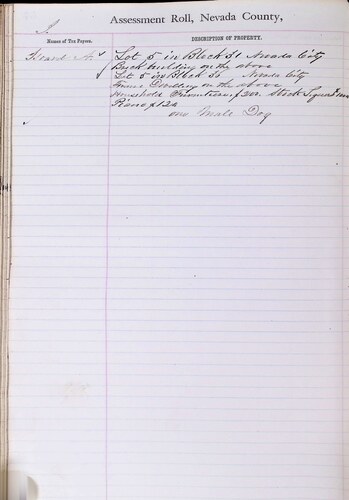 I.
Assessment Roll, Nevada County,
Names of Tax Payers.
DESCRIPTION OF PROPERTY.
Isoard A. Lot 5 in Block 31 Nevada City
Brick building on the above
Lot 5 in Block 36 Nevada City
Frame Dwelling on the above
Household Furniture $200. Stock Liquors
Piano $120
one Male Dog